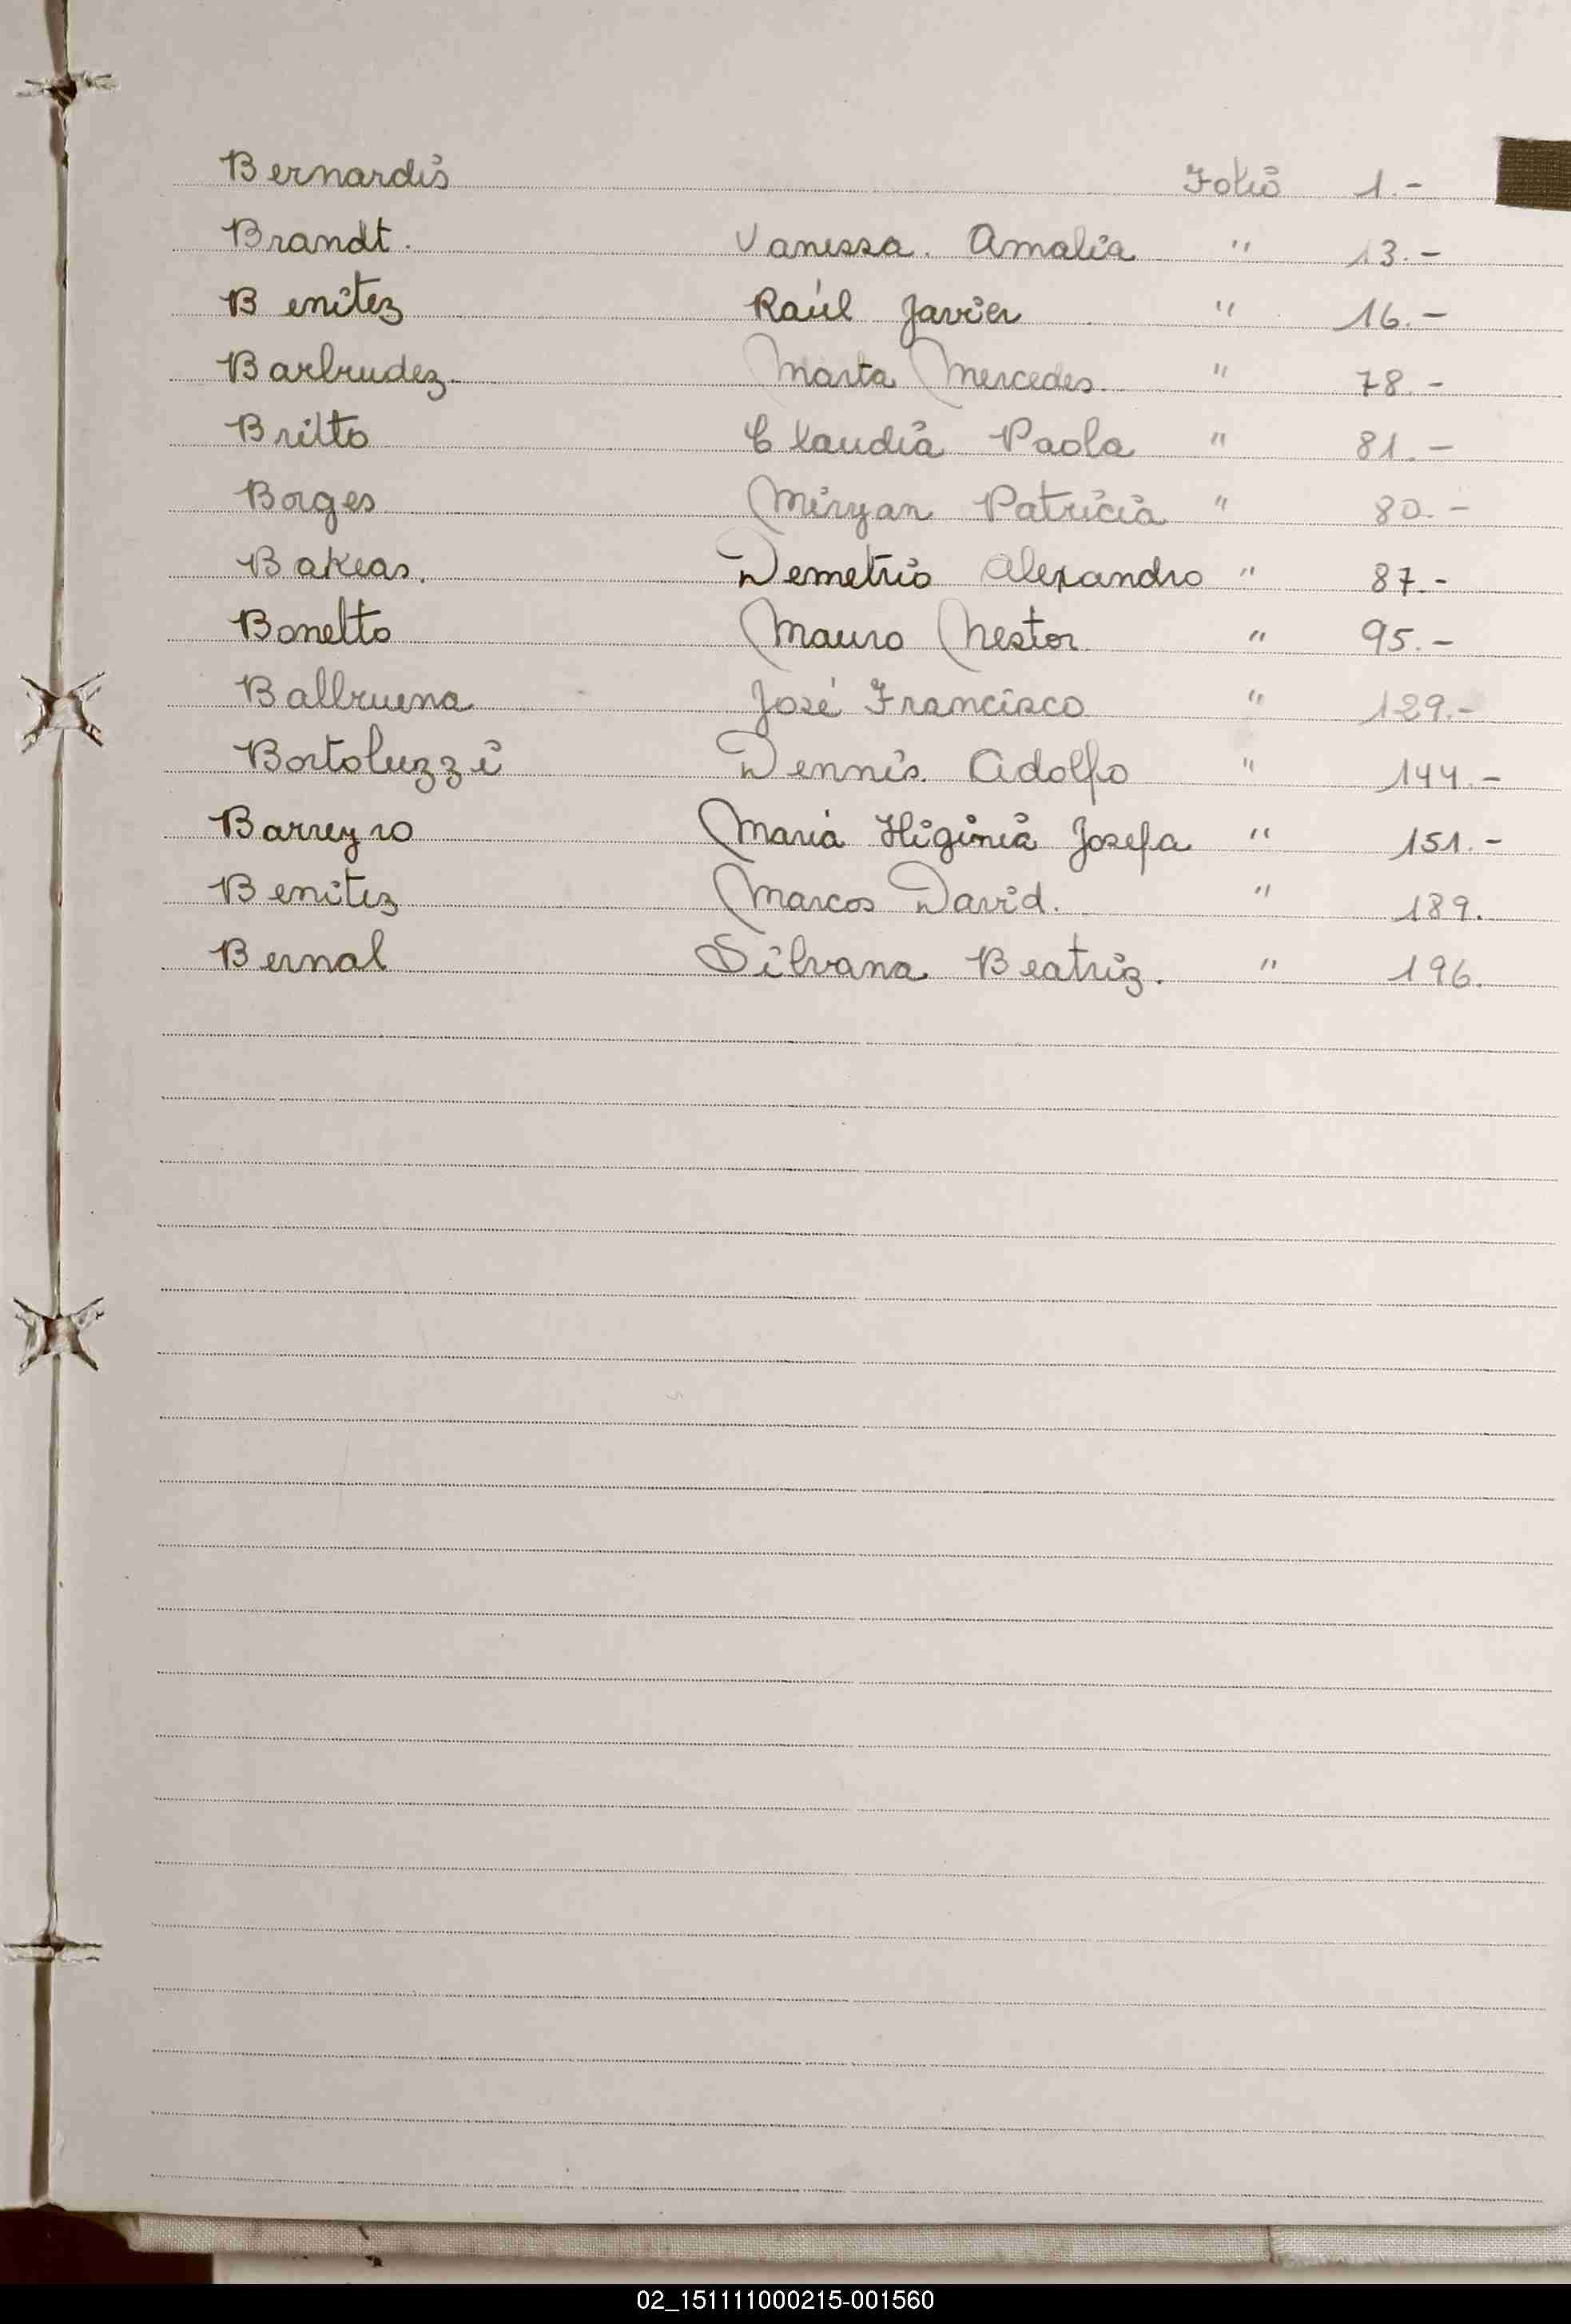 Bernardis Folio 1.-
Brandt. Vanessa. Amalia " 13.-
Benitez Raúl Javier " 16.-
Barbudez. Marta Mercedes. " 78.-
Britto Claudia Paola " 81.-
Borges Miryan Patricia " 80.-
Bakeas. Demetrio Alexandro " 87.-
Bonetto Mauro Nestor " 95.-
Balbuena José Francisco " 129.-
Bortoluzzi Dennis. Adolfo " 144.-
Barreyro Maria Higinia Josefa " 151.-
Benitez Marcos David. " 189.
Bernal Silvana Beatriz. " 196.
02_151111000215-001560